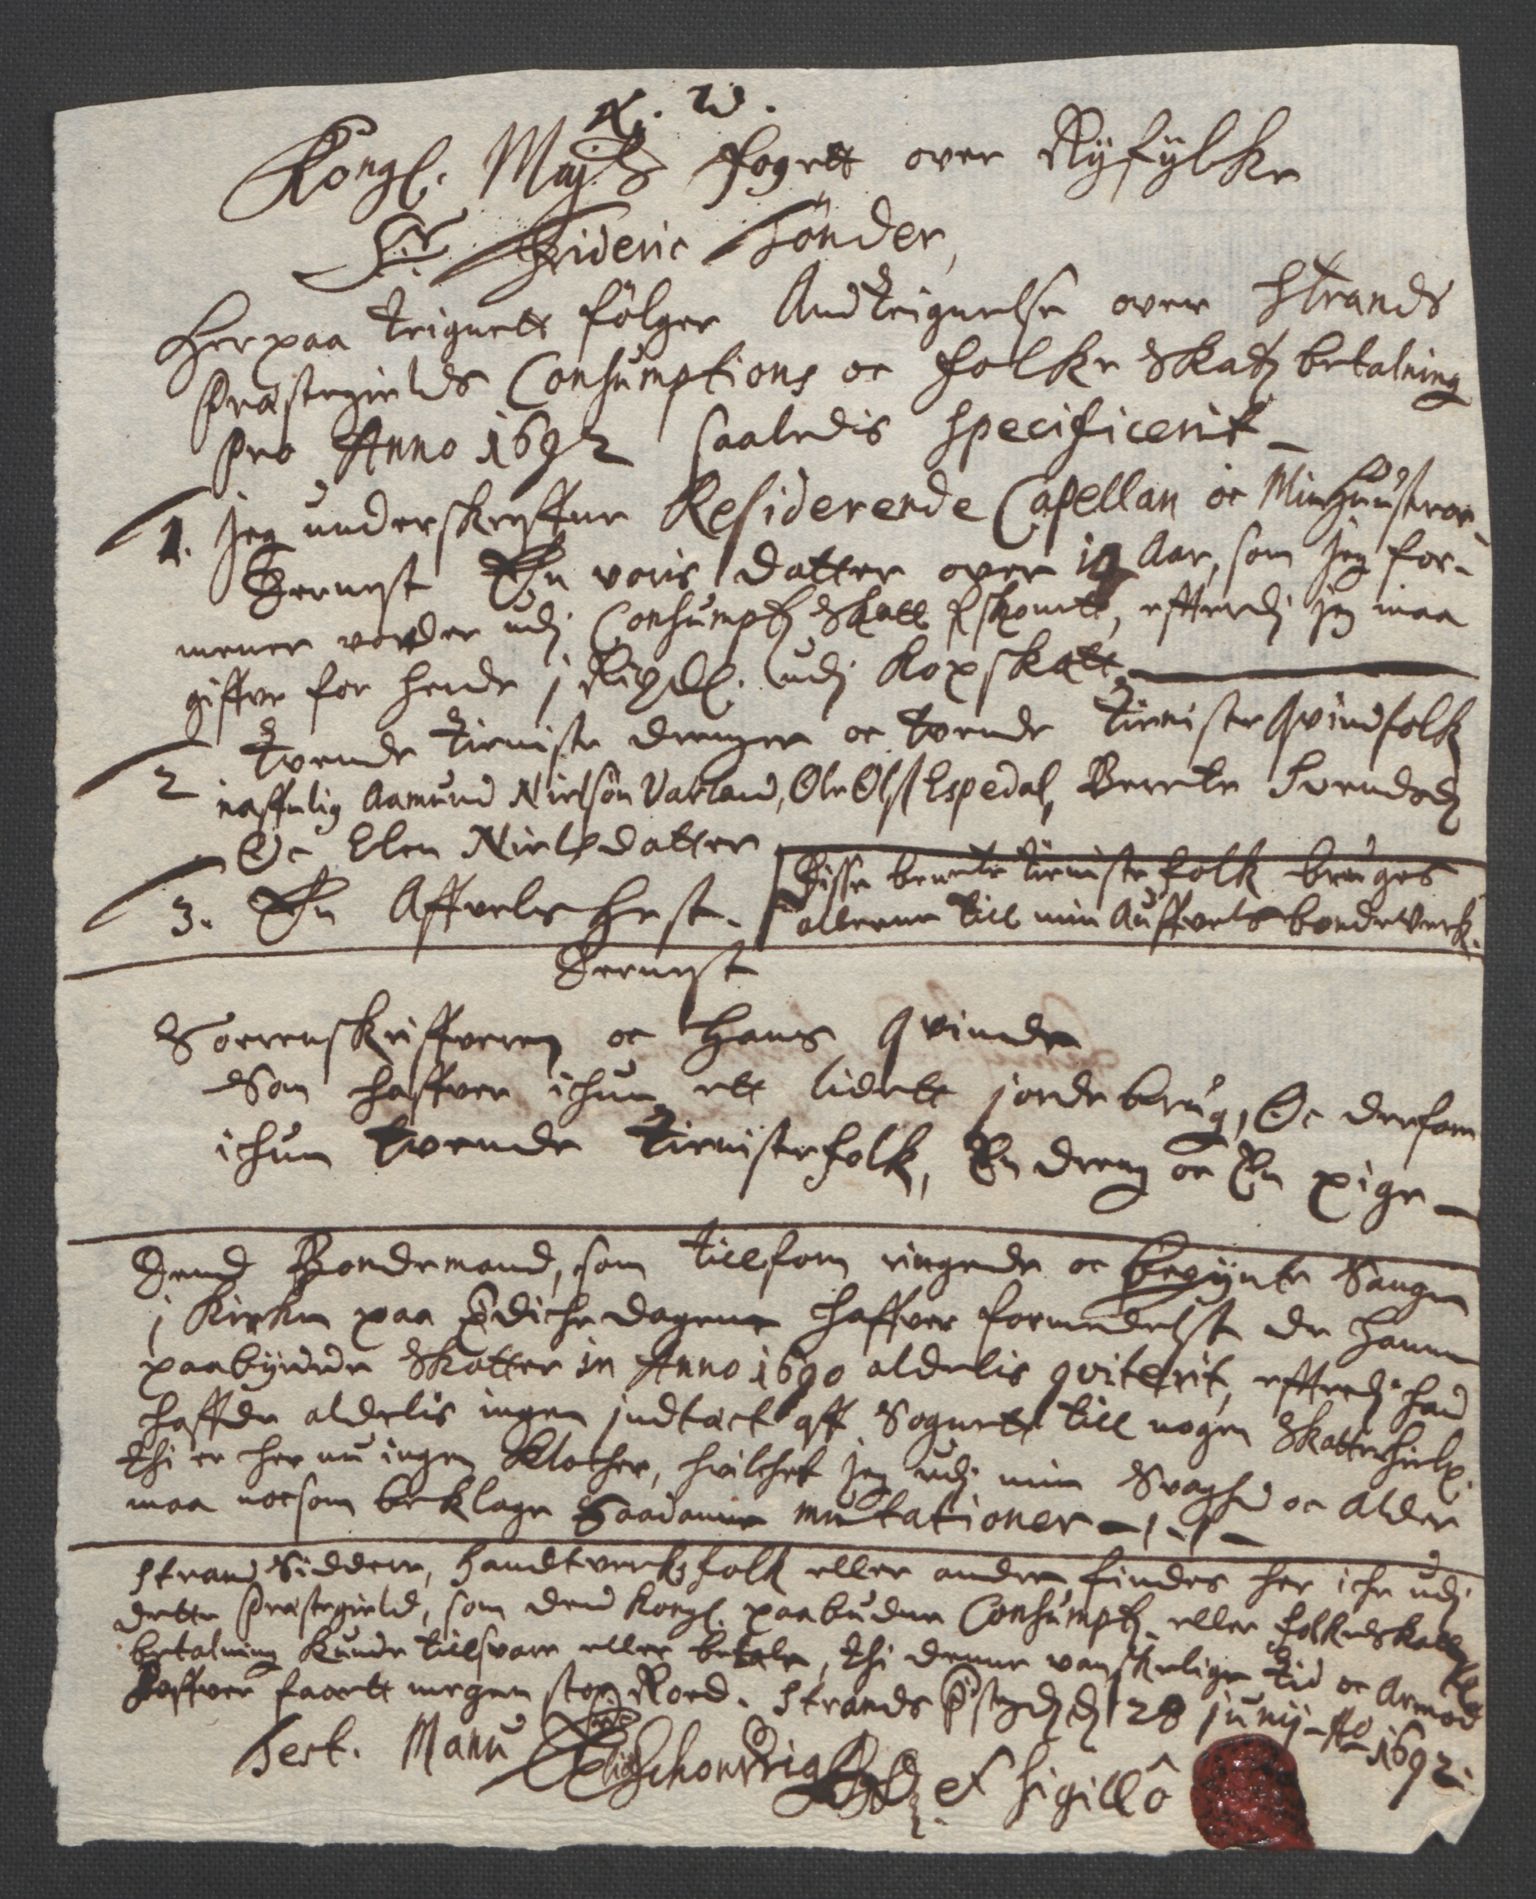 Kongl. Maj:ts fogett over Ryfylke
Sr. Frideric Tønder,
Her paa teignett følger Andteignelse over Strands
Præstegields Consumptions oc folke Skatz betalning
pro Anno 1692 saaledis specificerit
1. jeg underskreffne Residerende Capellan oc Min Huustroe
Dernest En voris datter over Aar, som jeg for-
mener vorder udj Consumptz Skatt, efterdj jeg maa
giffve for hende j Rixdl. udj Kopskatt
2 tvende tieniste drenger oc tvende tieniste qvindfolk
naffnlig Aamund Nielsøn Varland, Ole Olss Espedal, Berete Svendsd
Oc Elen Nielsdatter
3. En Affvels Hest. Disse bemte tieniste folk bruges
alleene till min Auffvels bondeverk.
Dernest
Sorrenskriffveren oc Hans qvinde
Som haffver ichun ett lidett jordebrug, Oc derfor
ichun tvende tienistefolk, En dreng oc En pige
Dend Bondemand, som tillforn ringede oc begynte Sangen
j Kirken paa prediche dagene haffver formedelst de hannem
paabydende Skatter in Anno 1690 aldelis qviterit, efterdj hand
haffde aldelis ingen jndtæct aff Sognet till nogen Skattehielp.
thi er her nu ingen Klocher, hvilchet jeg udj min Svaghed oc Alder
maa nocsom beklage Saadanne mutationer
Strand Siddere, Handtverksfolk eller andre findes her iche udj
dette Præstegield, som dend Kongl. paabudne Consumptz eller folkeskatts
betalning kunde tillsvare eller betale, thi denne vanskelige tid oc Armod
haffver foraarsaget megen stor Strands d. 28 junij Ao 1692.
Test. Manu et sigillô